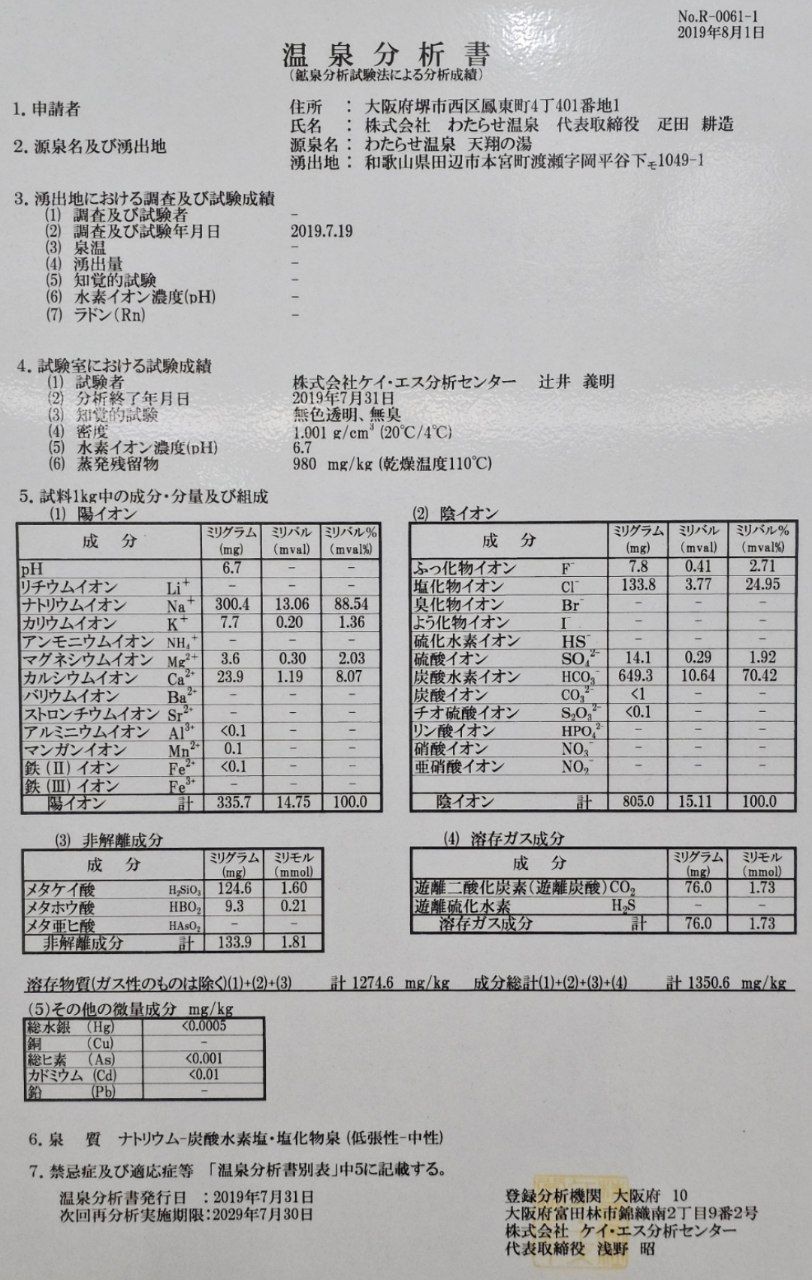 No.R-0061-1
2019年8月1日
温泉分析書
(鉱泉分析試験法による分析成績)
1. 申請者 住所 : 大阪府堺市西区鳳東町4丁401番地1
氏名 : 株式会社 わたらせ温泉 代表取締役 疋田 耕造
2. 源泉名及び湧出地 源泉名 : わたらせ温泉 天翔の湯
湧出地 : 和歌山県田辺市本宮町渡瀬字岡平谷下モ1049-1
3. 湧出地における調査及び試験成績
(1) 調査及び試験者 -
(2) 調査及び試験年月日 2019.7.19
(3) 泉温 -
(4) 湧出量 -
(5) 知覚的試験 -
(6) 水素イオン濃度(pH) -
(7) ラドン(Rn) -
4. 試験室における試験成績
(1) 試験者 株式会社ケイ・エス分析センター 辻井 義明
(2) 分析終了年月日 2019年7月31日
(3) 知覚的試験 無色透明、無臭
(4) 密度 1.001 g/cm³ (20℃/4℃)
(5) 水素イオン濃度(pH) 6.7
(6) 蒸発残留物 980 mg/kg (乾燥温度110℃)
5. 試料1kg中の成分・分量及び組成
(1) 陽イオン
成 分 ミリグラム(mg) ミリバル(mval) ミリバル%(mval%)
pH 6.7 - -
リチウムイオン Li⁺ - - -
ナトリウムイオン Na⁺ 300.4 13.06 88.54
カリウムイオン K⁺ 7.7 0.20 1.36
アンモニウムイオン NH₄⁺ - - -
マグネシウムイオン Mg²⁺ 3.6 0.30 2.03
カルシウムイオン Ca²⁺ 23.9 1.19 8.07
バリウムイオン Ba²⁺ - - -
ストロンチウムイオン Sr²⁺ - - -
アルミニウムイオン Al³⁺ <0.1 - -
マンガンイオン Mn²⁺ 0.1 - -
鉄(II)イオン Fe²⁺ <0.1 - -
鉄(III)イオン Fe³⁺ - - -
陽イオン 計 335.7 14.75 100.0
(2) 陰イオン
成 分 ミリグラム(mg) ミリバル(mval) ミリバル%(mval%)
ふっ化物イオン F⁻ 7.8 0.41 2.71
塩化物イオン Cl⁻ 133.8 3.77 24.95
臭化物イオン Br⁻ - - -
よう化物イオン I⁻ - - -
硫化水素イオン HS⁻ - - -
硫酸イオン SO₄²⁻ 14.1 0.29 1.92
炭酸水素イオン HCO₃⁻ 649.3 10.64 70.42
炭酸イオン CO₃²⁻ <1 - -
チオ硫酸イオン S₂O₃²⁻ <0.1 - -
リン酸イオン HPO₄²⁻ - - -
硝酸イオン NO₃⁻ - - -
亜硝酸イオン NO₂⁻ - - -
陰イオン 計 805.0 15.11 100.0
(3) 非解離成分
成 分 ミリグラム(mg) ミリモル(mmol)
メタケイ酸 H₂SiO₃ 124.6 1.60
メタホウ酸 HBO₂ 9.3 0.21
メタ亜ヒ酸 HAsO₂ - -
非解離成分 計 133.9 1.81
(4) 溶存ガス成分
成 分 ミリグラム(mg) ミリモル(mmol)
遊離二酸化炭素(遊離炭酸)CO₂ 76.0 1.73
遊離硫化水素 H₂S - -
溶存ガス成分 計 76.0 1.73
溶存物質(ガス性のものは除く)(1)+(2)+(3) 計 1274.6 mg/kg 成分総計(1)+(2)+(3)+(4) 計 1350.6 mg/kg
(5)その他の微量成分 mg/kg
総水銀 (Hg) <0.0005
銅 (Cu) -
総ヒ素 (As) <0.001
カドミウム (Cd) <0.01
鉛 (Pb) -
6. 泉 質 ナトリウム-炭酸水素塩・塩化物泉 (低張性-中性)
7. 禁忌症及び適応症等 「温泉分析書別表」中5に記載する。
温泉分析書発行日 :2019年7月31日
次回再分析実施期限:2029年7月30日
登録分析機関 大阪府 10
大阪府富田林市錦織南2丁目9番2号
株式会社 ケイ・エス分析センター
代表取締役 浅野 昭